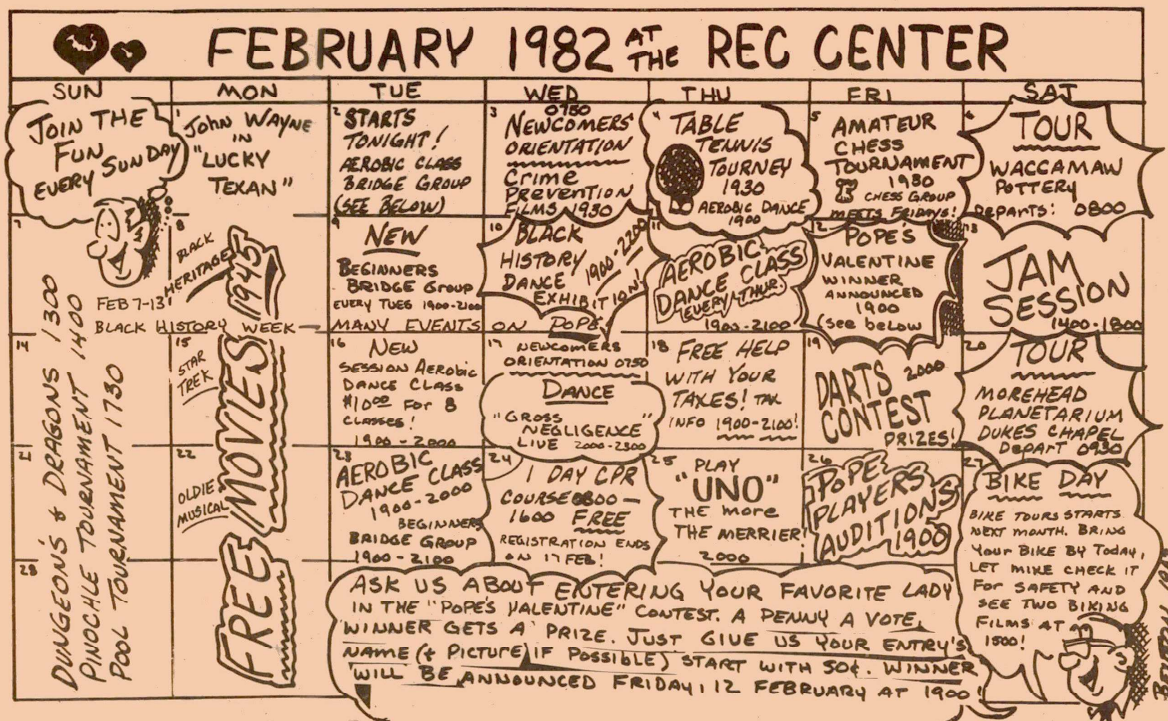 FEBRUARY 1982 AT THE REC CENTER
SUN MON TUE WED THU FRI SAT
JOIN THE
FUN
EVERY SUNDAY
1
JOHN WAYNE
IN
"LUCKY
TEXAN"
2
STARTS
TONIGHT!
AEROBIC CLASS
BRIDGE GROUP
(SEE BELOW)
3
0750
NEWCOMERS'
ORIENTATION
CRIME
PREVENTION
FILMS 1930
4
TABLE
TENNIS
TOURNEY
1930
AEROBIC DANCE
1900
5
AMATEUR
CHESS
TOURNAMENT
1930
CHESS GROUP
MEETS FRIDAYS!
6
TOUR
WACCAMAW
POTTERY
DEPARTS: 0800
7
DUNGEONS & DRAGONS 1300
PINOCHLE TOURNAMENT 1400
POOL TOURNAMENT 1730
FEB 7-13
BLACK HISTORY WEEK - MANY EVENTS ON POPE
8
BLACK
HERITAGE
FREE MOVIES 1945
9
NEW
BEGINNERS
BRIDGE GROUP
EVERY TUES 1900-2100
10
BLACK
HISTORY
DANCE
EXHIBITION!
1900-2200
11
AEROBIC
DANCE CLASS
EVERY THUR
1900-2100
12
POPE'S
VALENTINE
WINNER
ANNOUNCED
1900
(see below
13
JAM
SESSION
1400-1800
14
15
STAR
TREK
16
NEW
SESSION AEROBIC
DANCE CLASS
$10.00 FOR 8
CLASSES!
1900-2000
17
NEWCOMERS
ORIENTATION 0750
DANCE
"GROSS
NEGLIGENCE"
LIVE 2000-2300
18
FREE HELP
WITH YOUR
TAXES! TAX
INFO 1900-2100!
19
DARTS 2000
CONTEST
PRIZES!
20
TOUR
MOREHEAD
PLANETARIUM
DUKES CHAPEL
DEPART 0930
21
22
OLDIE
MUSICAL
23
AEROBIC
DANCE CLASS
1900-2000
BEGINNERS
BRIDGE GROUP
1900-2100
24
1 DAY CPR
COURSE 0800-
1600 FREE
REGISTRATION ENDS
ON 17 FEB!
25
PLAY
"UNO"
THE MORE
THE MERRIER!
2000
26
POPE
PLAYERS
AUDITIONS
1900
27
BIKE DAY
BIKE TOURS STARTS
NEXT MONTH. BRING
YOUR BIKE BY TODAY,
LET MIKE CHECK IT
FOR SAFETY AND
SEE TWO BIKING
FILMS AT
1500!
28
ASK US ABOUT ENTERING YOUR FAVORITE LADY
IN THE "POPE'S VALENTINE" CONTEST. A PENNY A VOTE,
WINNER GETS A PRIZE. JUST GIVE US YOUR ENTRY'S
NAME (& PICTURE IF POSSIBLE) START WITH 50¢. WINNER
WILL BE ANNOUNCED FRIDAY, 12 FEBRUARY AT 1900!